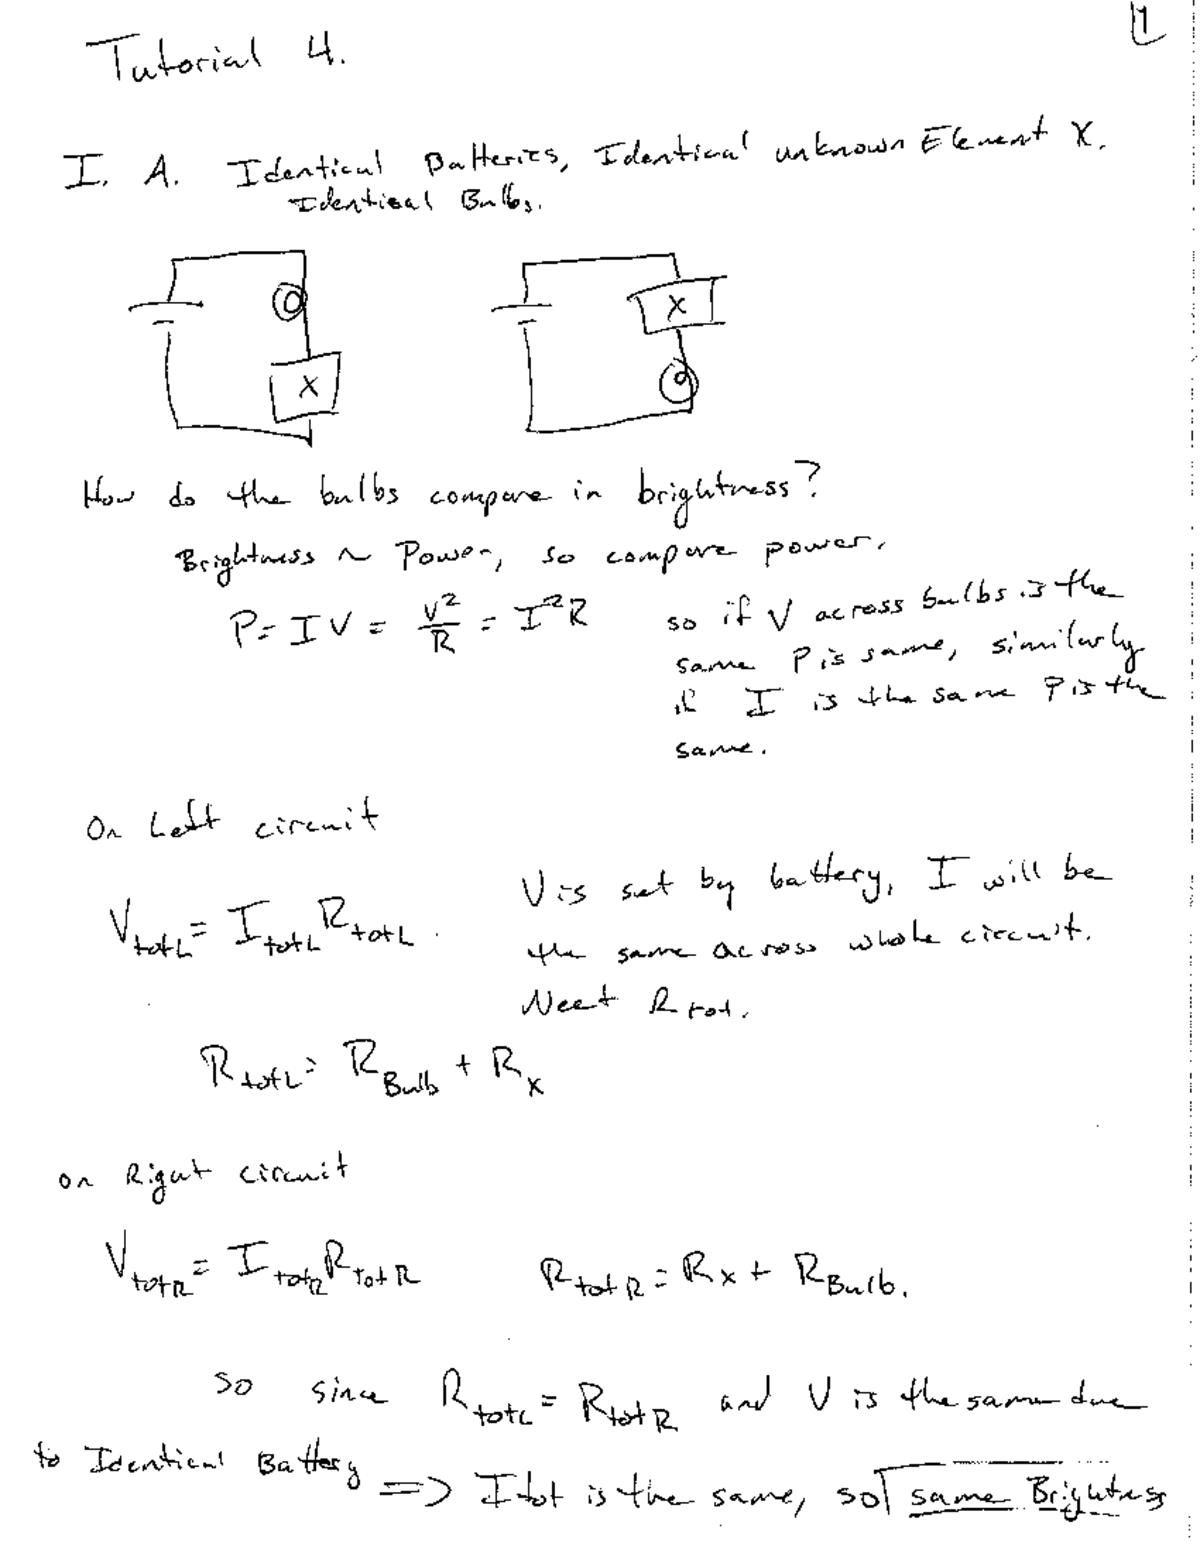 1
Tutorial 4.
I. A. Identical Batteries, Identical unknown Element X.
Identical Bulbs.
X
X
How do the bulbs compare in brightness?
Brightness ~ Power, so compare power.
P = IV = V²/R = I²R
so if V across bulbs is the
same P is same, similarly
if I is the same P is the
same.
On Left circuit
V is set by battery, I will be
V_totL = I_totL R_totL.
the same across whole circuit.
Neet R tot.
R_totL = R_Bulb + R_X
on Right circuit
V_totR = I_totR R_totR    R_totR = R_X + R_Bulb.
so since R_totL = R_totR and V is the same due
to Identical Battery => I tot is the same, so same Brightness